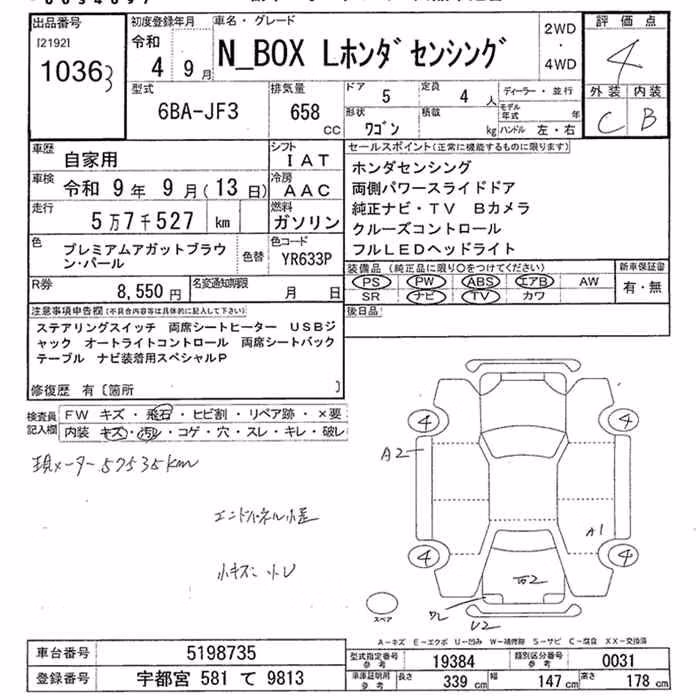 出品番号
[2192]
1036
初度登録年月
令和
4 9月
車名・グレード
N_BOX Lホンダセンシング
2WD
・
4WD
評価点
4
外装 内装
C B
型式
6BA-JF3
排気量
658
CC
ドア 5
定員 4人
形状 ワゴン
積載 kg
ディーラー・並行
モデル年式 年
ハンドル 左・右
車歴 自家用
シフト IAT
車検 令和 9年 9月(13日)
冷房 AAC
走行 5万7千527 km
燃料 ガソリン
色 プレミアムアガットブラウ
ン・パール
色替
色コード YR633P
R券 8,550円
名変通知期限 月 日
セールスポイント(正常に機能するものに限ります)
ホンダセンシング
両側パワースライドドア
純正ナビ・TV Bカメラ
クルーズコントロール
フルLEDヘッドライト
装備品(純正品に限り○をつけてください)
PS PW ABS エアB AW
SR ナビ TV カワ
新車保証書
有・無
後日品
注意事項申告欄(不具合内容等は具体的に記入して下さい)
ステアリングスイッチ 両席シートヒーター USBジ
ャック オートライトコントロール 両席シートバック
テーブル ナビ装着用スペシャルP
修復歴 有〔箇所 〕
検査員
記入欄
FW キズ・飛石・ヒビ割・リペア跡・×要
内装 キズ・汚レ・コゲ・穴・スレ・キレ・破レ
現メーター57535km
エンドパネル小歪
小キズ 小U
4 4
A2
A1
4 4
U2
スペア
A-キズ E-エクボ U-凹み W-補修跡 S-サビ C-腐食 XX-交換済
車台番号 5198735
登録番号 宇都宮 581 て 9813
型式指定番号
参考
19384
類別区分番号
参考
0031
車庫証明用
参考
長さ 339 cm 幅 147 cm 高さ 178 cm